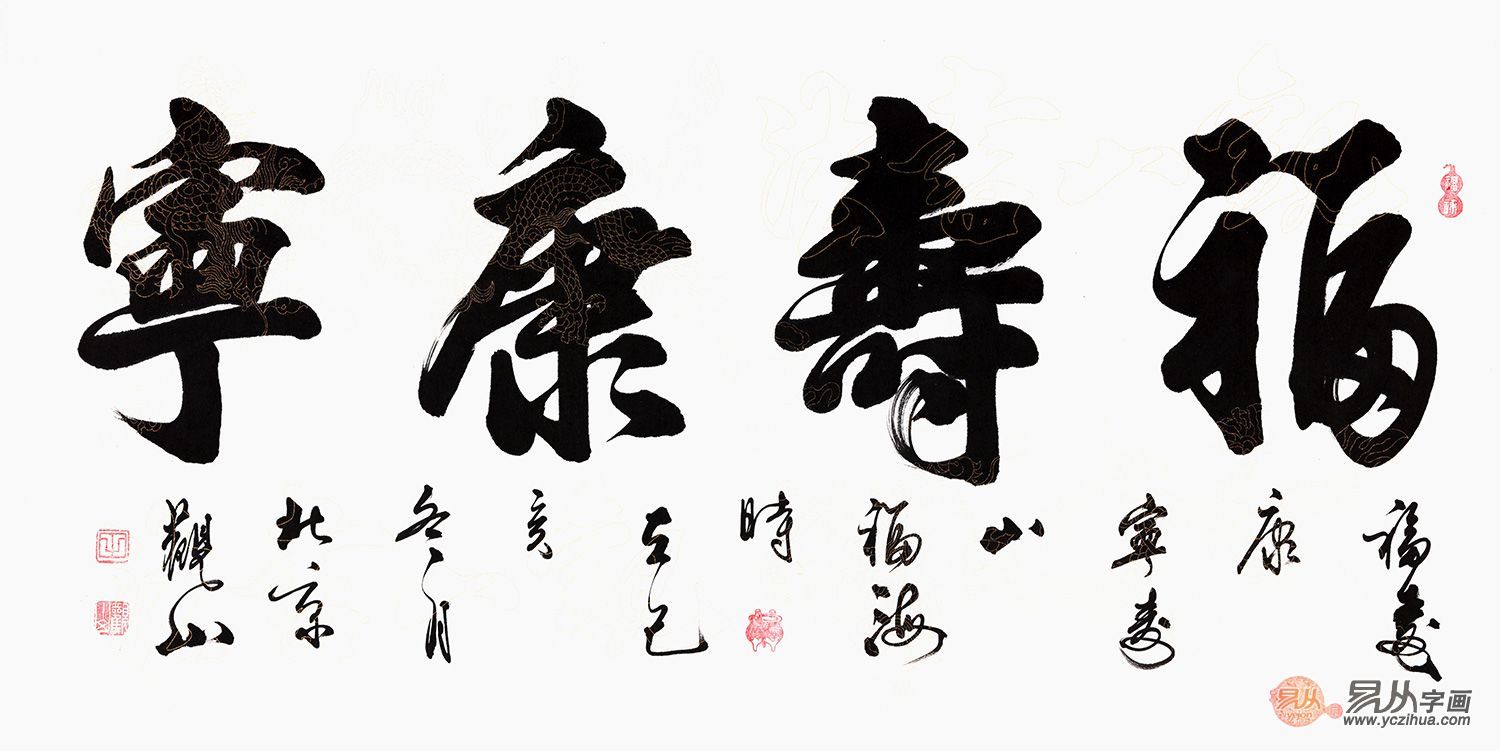 福壽康寧
福壽
康
寧壽
山
福海
時
在己
亥
冬月
北京
觀山
易从
yicon
易从字画
www.yczihua.com